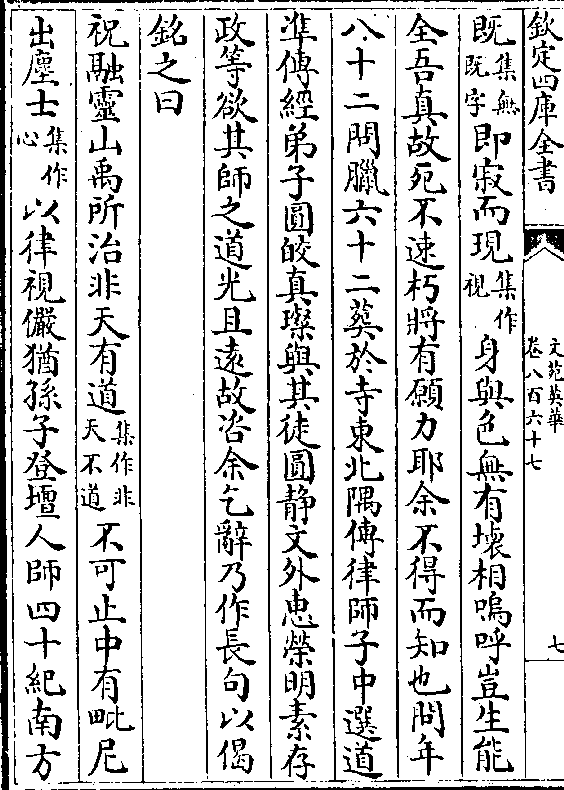 欽定四庫全書
文苑英華
卷八百六十七
七
既集無既字即寂而現集作視身與色無有壞相嗚呼豈生能
全吾真故死不速朽將有願力耶余不得而知也問年
八十二問臘六十二葬於寺東北隅傳律師子中選道
準傳經弟子圓皎真璨與其徒圓静文外恵榮明素存
政等欲其師之道光且遠故咨余乞辭乃作長句以偈
銘之曰
祝融靈山禹所治非天有道集作非天不道不可止中有毗尼
出塵士集作心以律視儼猶孫子登壇人師四十紀南方